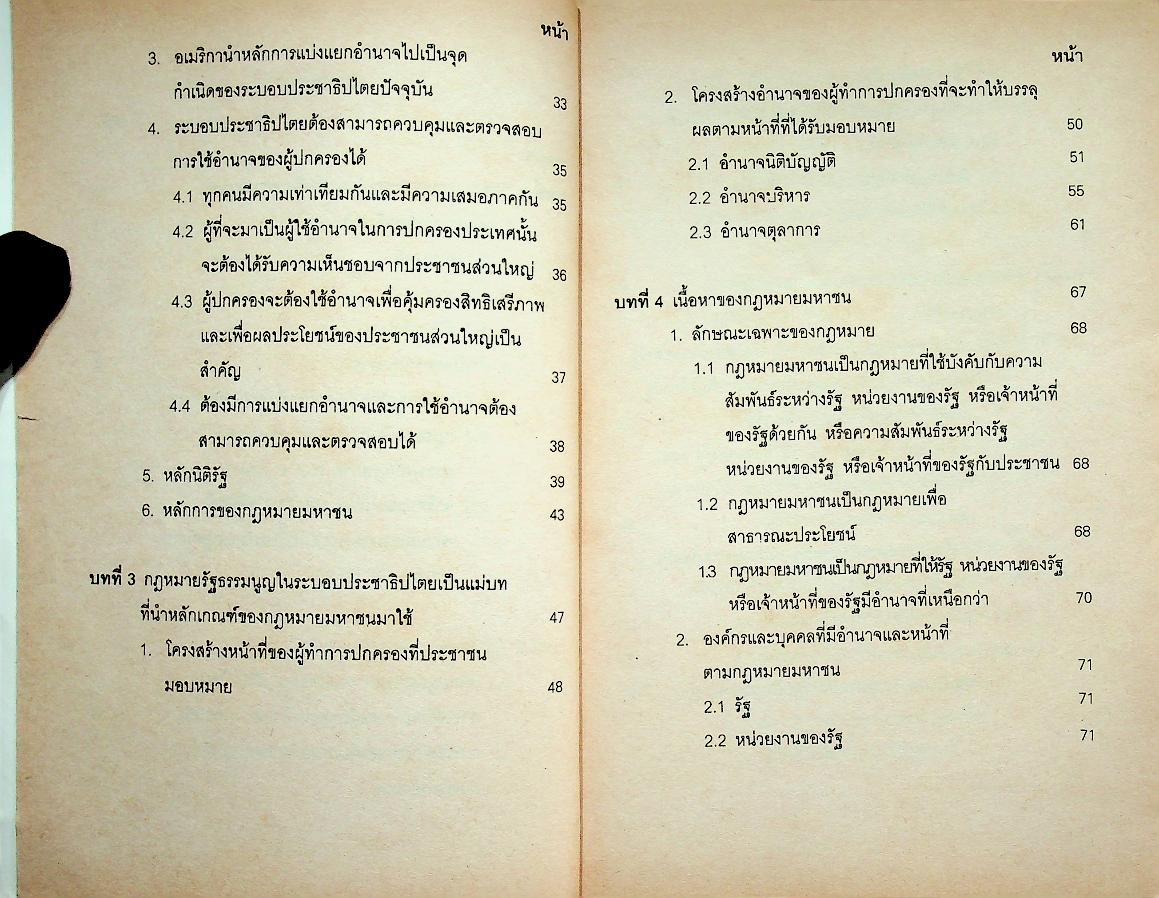 หน้า
3. อเมริกานำหลักการแบ่งแยกอำนาจไปเป็นจุด
กำเนิดของระบอบประชาธิปไตยปัจจุบัน 33
4. ระบอบประชาธิปไตยต้องสามารถควบคุมและตรวจสอบ
การใช้อำนาจของผู้ปกครองได้ 35
4.1 ทุกคนมีความเท่าเทียมกันและมีความเสมอภาคกัน 35
4.2 ผู้ที่จะมาเป็นผู้ใช้อำนาจในการปกครองประเทศนั้น
จะต้องได้รับความเห็นชอบจากประชาชนส่วนใหญ่ 36
4.3 ผู้ปกครองจะต้องใช้อำนาจเพื่อคุ้มครองสิทธิเสรีภาพ
และเพื่อผลประโยชน์ของประชาชนส่วนใหญ่เป็น
สำคัญ 37
4.4 ต้องมีการแบ่งแยกอำนาจและการใช้อำนาจต้อง
สามารถควบคุมและตรวจสอบได้ 38
5. หลักนิติรัฐ 39
6. หลักการของกฎหมายมหาชน 43
บทที่ 3 กฎหมายรัฐธรรมนูญในระบอบประชาธิปไตยเป็นแม่บท
ที่นำหลักเกณฑ์ของกฎหมายมหาชนมาใช้ 47
1. โครงสร้างหน้าที่ของผู้ทำการปกครองที่ประชาชน
มอบหมาย 48
หน้า
2. โครงสร้างอำนาจของผู้ทำการปกครองที่จะทำให้บรรลุ
ผลตามหน้าที่ที่ได้รับมอบหมาย 50
2.1 อำนาจนิติบัญญัติ 51
2.2 อำนาจบริหาร 55
2.3 อำนาจตุลาการ 61
บทที่ 4 เนื้อหาของกฎหมายมหาชน 67
1. ลักษณะเฉพาะของกฎหมาย 68
1.1 กฎหมายมหาชนเป็นกฎหมายที่ใช้บังคับกับความ
สัมพันธ์ระหว่างรัฐ หน่วยงานของรัฐ หรือเจ้าหน้าที่
ของรัฐด้วยกัน หรือความสัมพันธ์ระหว่างรัฐ
หน่วยงานของรัฐ หรือเจ้าหน้าที่ของรัฐกับประชาชน 68
1.2 กฎหมายมหาชนเป็นกฎหมายเพื่อ
สาธารณะประโยชน์ 68
1.3 กฎหมายมหาชนเป็นกฎหมายที่ให้รัฐ หน่วยงานของรัฐ
หรือเจ้าหน้าที่ของรัฐมีอำนาจที่เหนือกว่า 70
2. องค์กรและบุคคลที่มีอำนาจและหน้าที่
ตามกฎหมายมหาชน 71
2.1 รัฐ 71
2.2 หน่วยงานของรัฐ 71